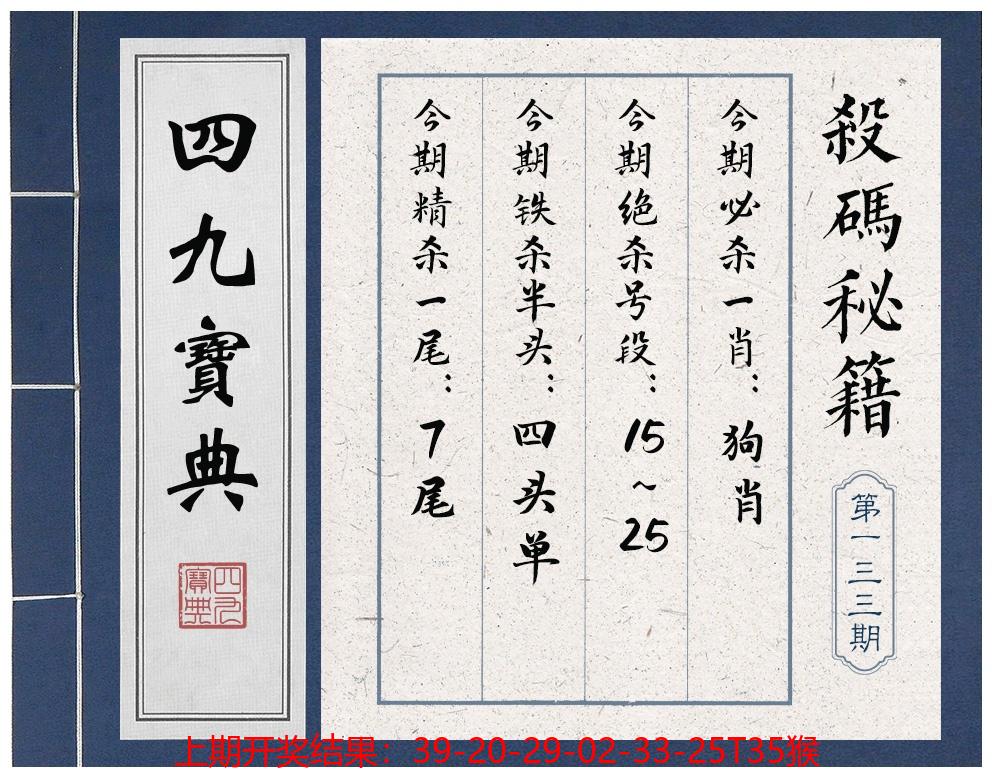 殺碼秘籍
第一三三期
今期必杀一肖：狗肖
今期绝杀号段：15~25
今期铁杀半头：四头单
今期精杀一尾：7尾
四九寶典
四九寶典
上期开奖结果：39-20-29-02-33-25T35猴